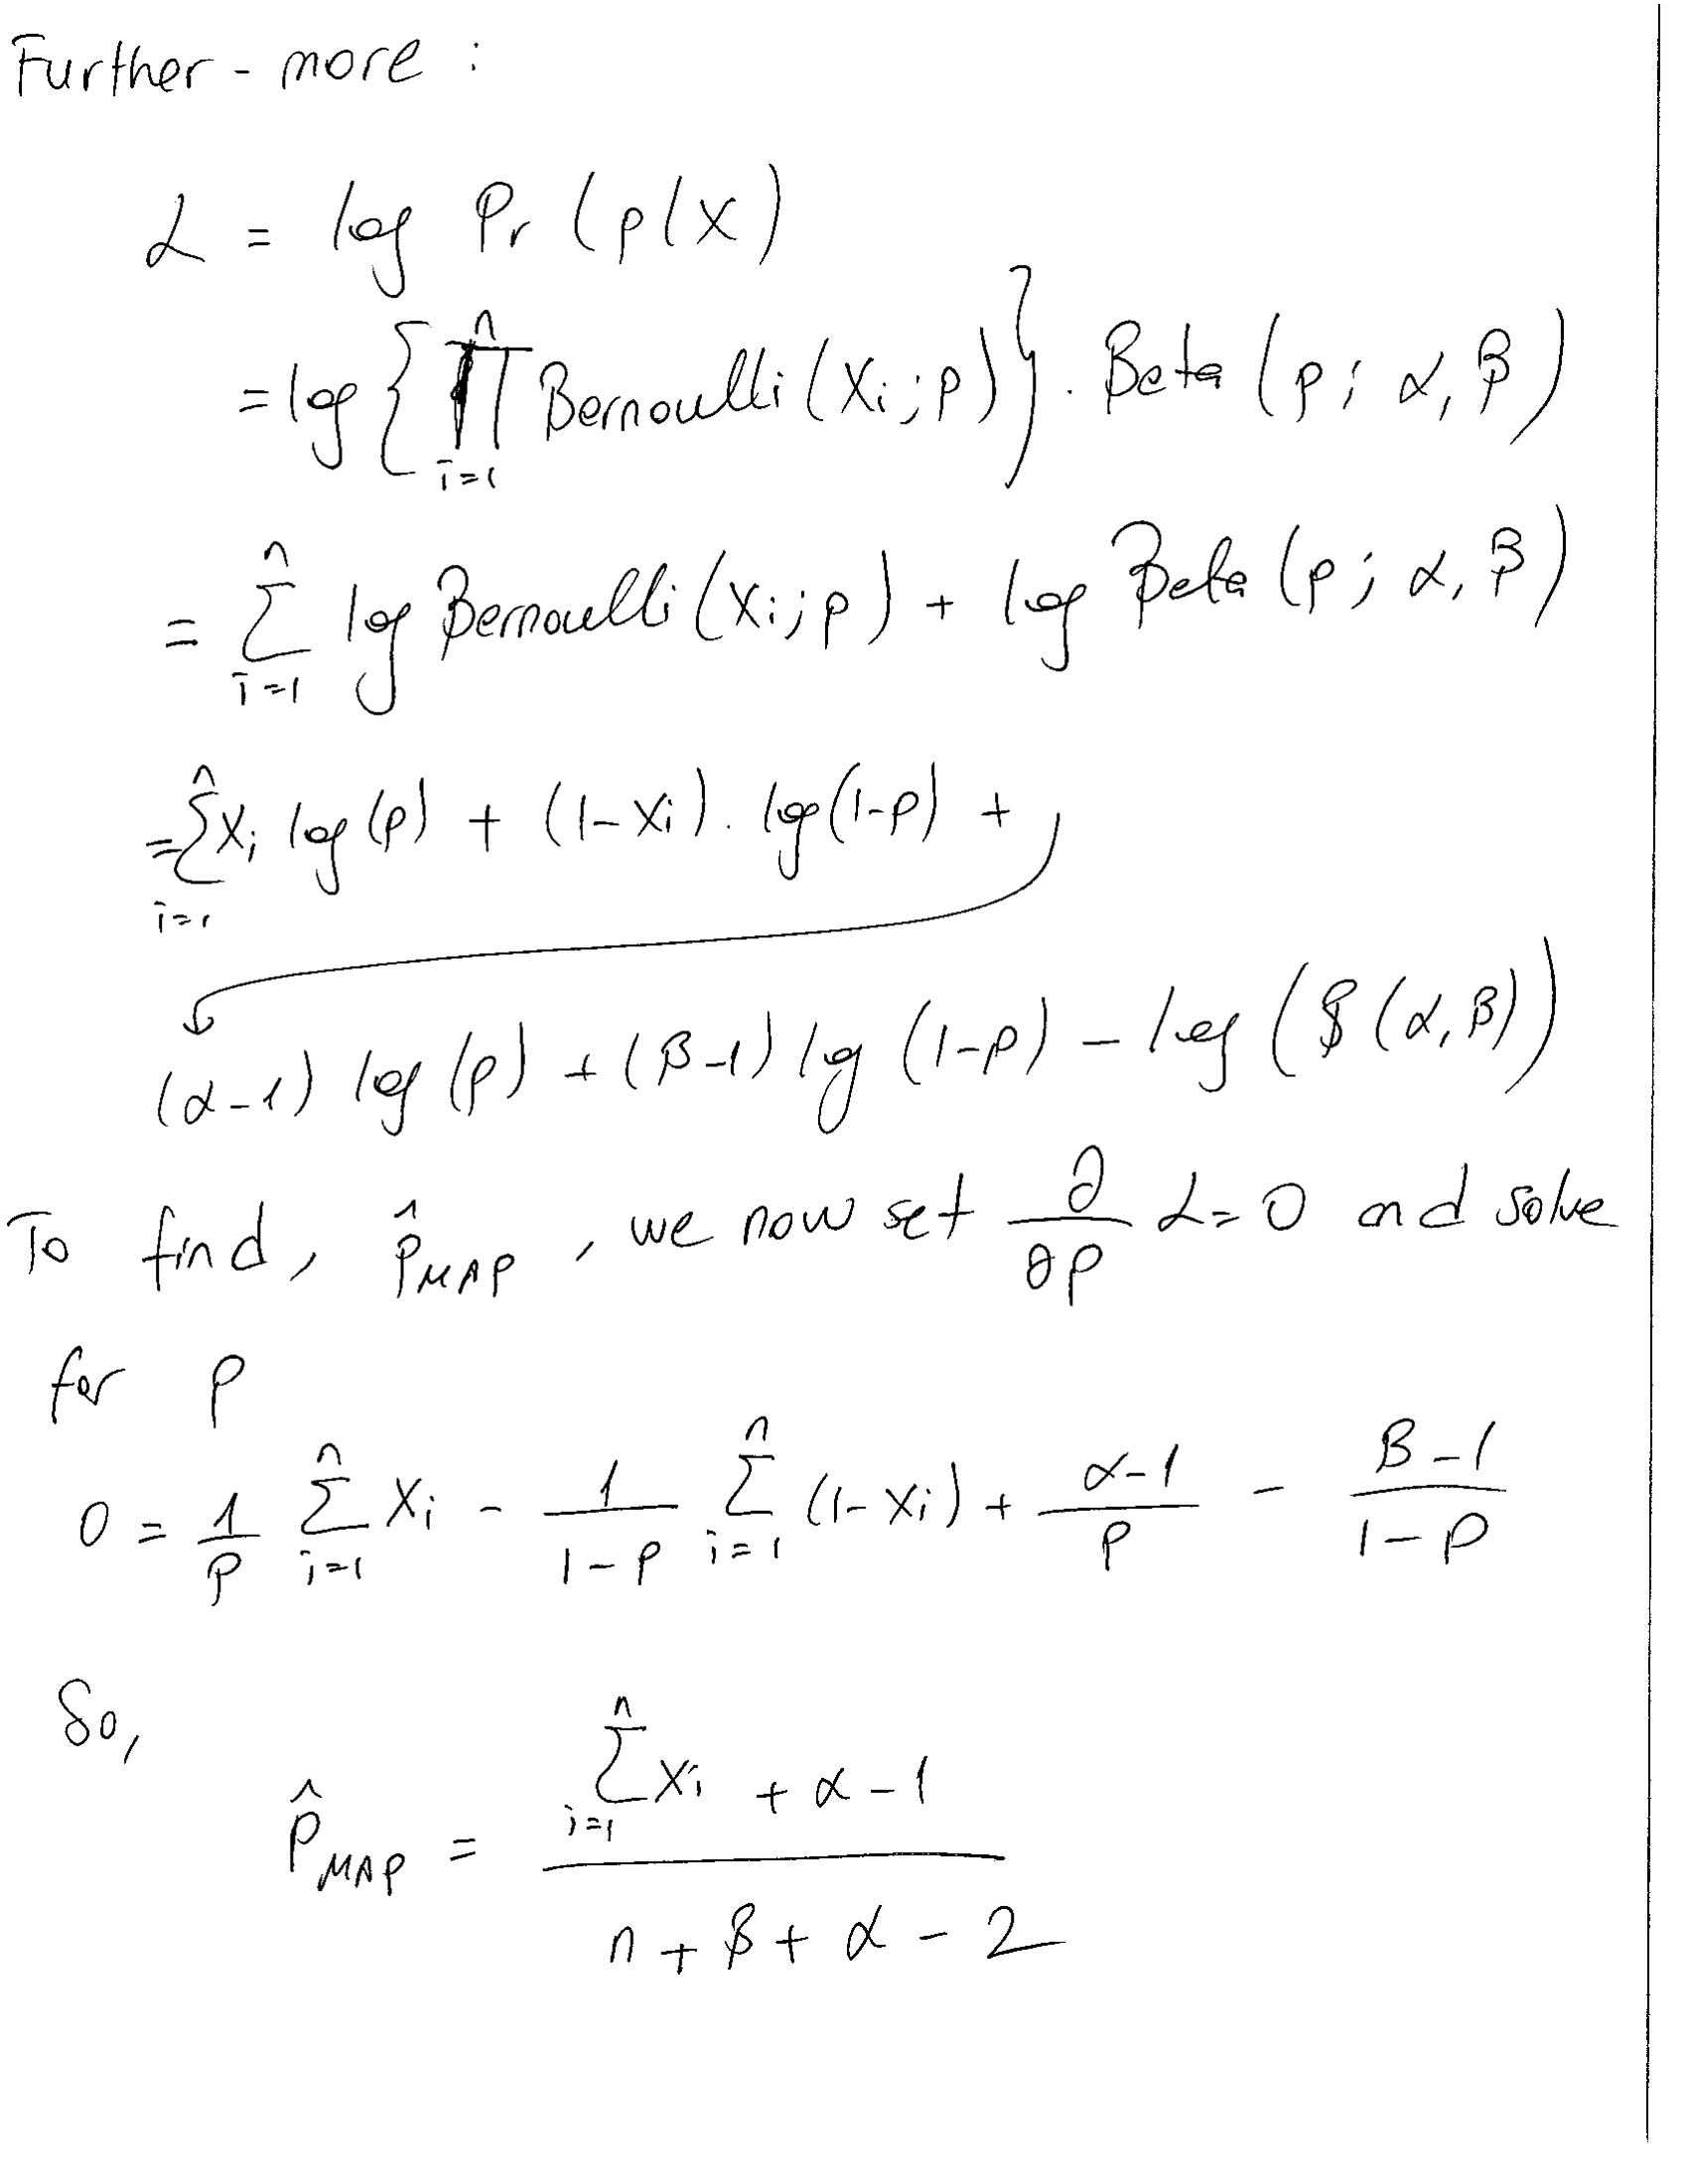 Further-more :
ℒ = log Pr (p|X)
= log { ∏_{i=1}^{n} Bernoulli (Xi ; p) } . Beta (p ; α, β)
= ∑_{i=1}^{n} log Bernoulli (Xi ; p) + log Beta (p ; α, β)
= ∑_{i=1}^{n} Xi log (p) + (1 - Xi) . log (1-p) +
(α-1) log (p) + (β-1) log (1-p) - log (B (α, β))
To find, p̂_MAP , we now set ∂/∂p ℒ = 0 and solve
for p
0 = 1/p ∑_{i=1}^{n} Xi - 1/(1-p) ∑_{i=1}^{n} (1-Xi) + (α-1)/p - (β-1)/(1-p)
So,
p̂_MAP = (∑_{i=1}^{n} Xi + α - 1) / (n + β + α - 2)